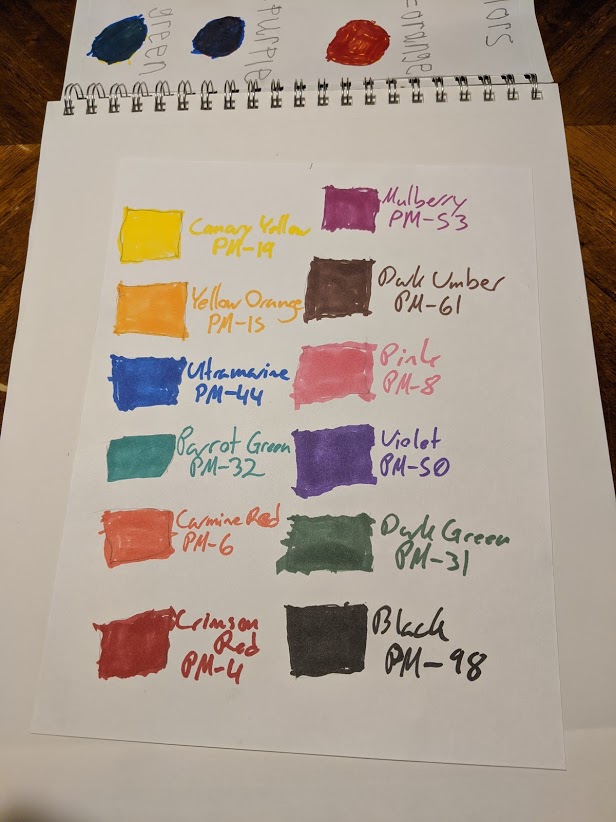 green
purple
=orange
lors
Canary Yellow
PM-19
Yellow Orange
PM-15
Ultramarine
PM-44
Parrot Green
PM-32
Carmine Red
PM-6
Crimson
Red
PM-4
Mulberry
PM-53
Dark Umber
PM-61
Pink
PM-8
Violet
PM-50
Dark Green
PM-31
Black
PM-98